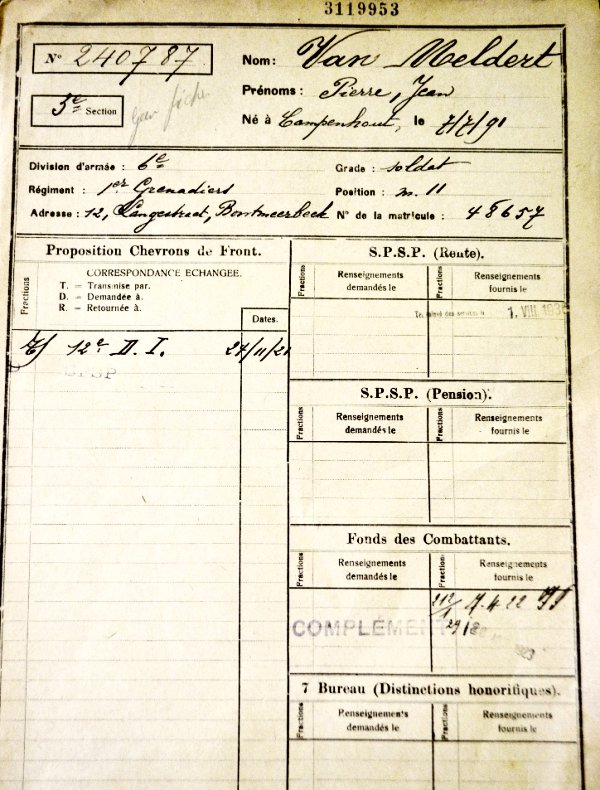 3119953
N° 240787
Nom: Van Meldert
Prénoms: Pierre, Jean
5e Section
Né à Campenhout, le 7/7/91
Division d'armée : 6e
Grade : soldat
Régiment : 1er Grenadiers
Position : m. 11
Adresse : 12, Langestraat, Bontmeerbeek
N° de la matricule : 48657
Proposition Chevrons de Front.
Fractions
CORRESPONDANCE ECHANGEE.
T. = Transmise par.
D. = Demandée à.
R. = Retournée à.
Dates.
T) 12e D. I. 24/11/21
SPSP
S.P.S.P. (Rente).
Fractions
Renseignements demandés le
Fractions
Renseignements fournis le
1. VIII. 193
S.P.S.P. (Pension).
Fractions
Renseignements demandés le
Fractions
Renseignements fournis le
Fonds des Combattants.
Fractions
Renseignements demandés le
Fractions
Renseignements fournis le
212/1 7.4.22
COMPLÉMENT
7 Bureau (Distinctions honorifiques).
Fractions
Renseignements demandés le
Fractions
Renseignements fournis le